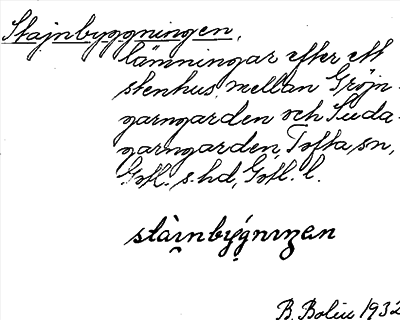 Stajnbyggningen,
lämningar efter ett
stenhus mellan Gröjn-
garngarden och Suda-
garngarden, Tofta sn,
Gotl. s. hd, Gotl. l.
stàinby̨gnıŋen
B. Bolin 1932